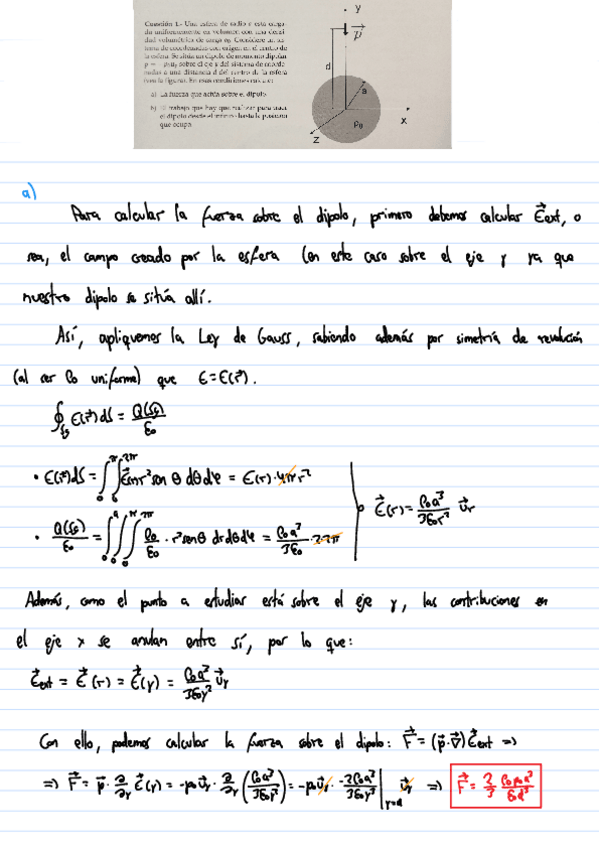 Cuestión 1.- Una esfera de radio a está carga-
da uniformemente en volumen con una densi-
dad volumétrica de carga ρ₀. Considere un sis-
tema de coordenadas con origen en el centro de
la esfera. Se sitúa un dipolo de momento dipolar
sobre el eje y del sistema de coorde-
nadas a una distancia d del centro de la esfera
(ver la figura). En esas condiciones
a) La fuerza que actúa sobre el dipolo
b) El trabajo que hay que realizar para traer
el dipolo desde el infinito hasta la posición
que ocupa
y
p⃗
d
a
x
ρ₀
z
a)
Para calcular la fuerza sobre el dipolo, primero debemos calcular E⃗ext, o
sea, el campo creado por la esfera (en este caso sobre el eje y ya que
nuestro dipolo se sitúa allí.
Así, apliquemos la Ley de Gauss, sabiendo además por simetría de revolución
(al ser ρ₀ uniforme) que E=E(r⃗).
∮ E(r⃗)dS = Q(S_G)/ε₀
• E(r⃗)dS = ∫₀^π ∫₀^2π E(r) r² sen θ dθ dφ = E(r)·4π r²
• Q(S_G)/ε₀ = ∫₀^a ∫₀^π ∫₀^2π ρ₀/ε₀ · r² senθ dr dθ dφ = ρ₀a³/3ε₀ · 2·2π
E⃗(r) = ρ₀a³/3ε₀r² u⃗r
Además, como el punto a estudiar está sobre el eje y, las contribuciones en
el eje x se anulan entre sí, por lo que:
E⃗ext = E⃗(r) = E⃗(y) = ρ₀a³/3ε₀y² u⃗y
Con ello, podemos calcular la fuerza sobre el dipolo: F⃗ = (p⃗·∇⃗)E⃗ext =>
=> F⃗ = p⃗ · ∂/∂y E⃗(y) = -p₀u⃗y · ∂/∂y (ρ₀a³/3ε₀y²) = -p₀u⃗y · -2ρ₀a³/3ε₀y³ |y=d u⃗y => F⃗ = 2/3 ρ₀p₀a³/ε₀d³